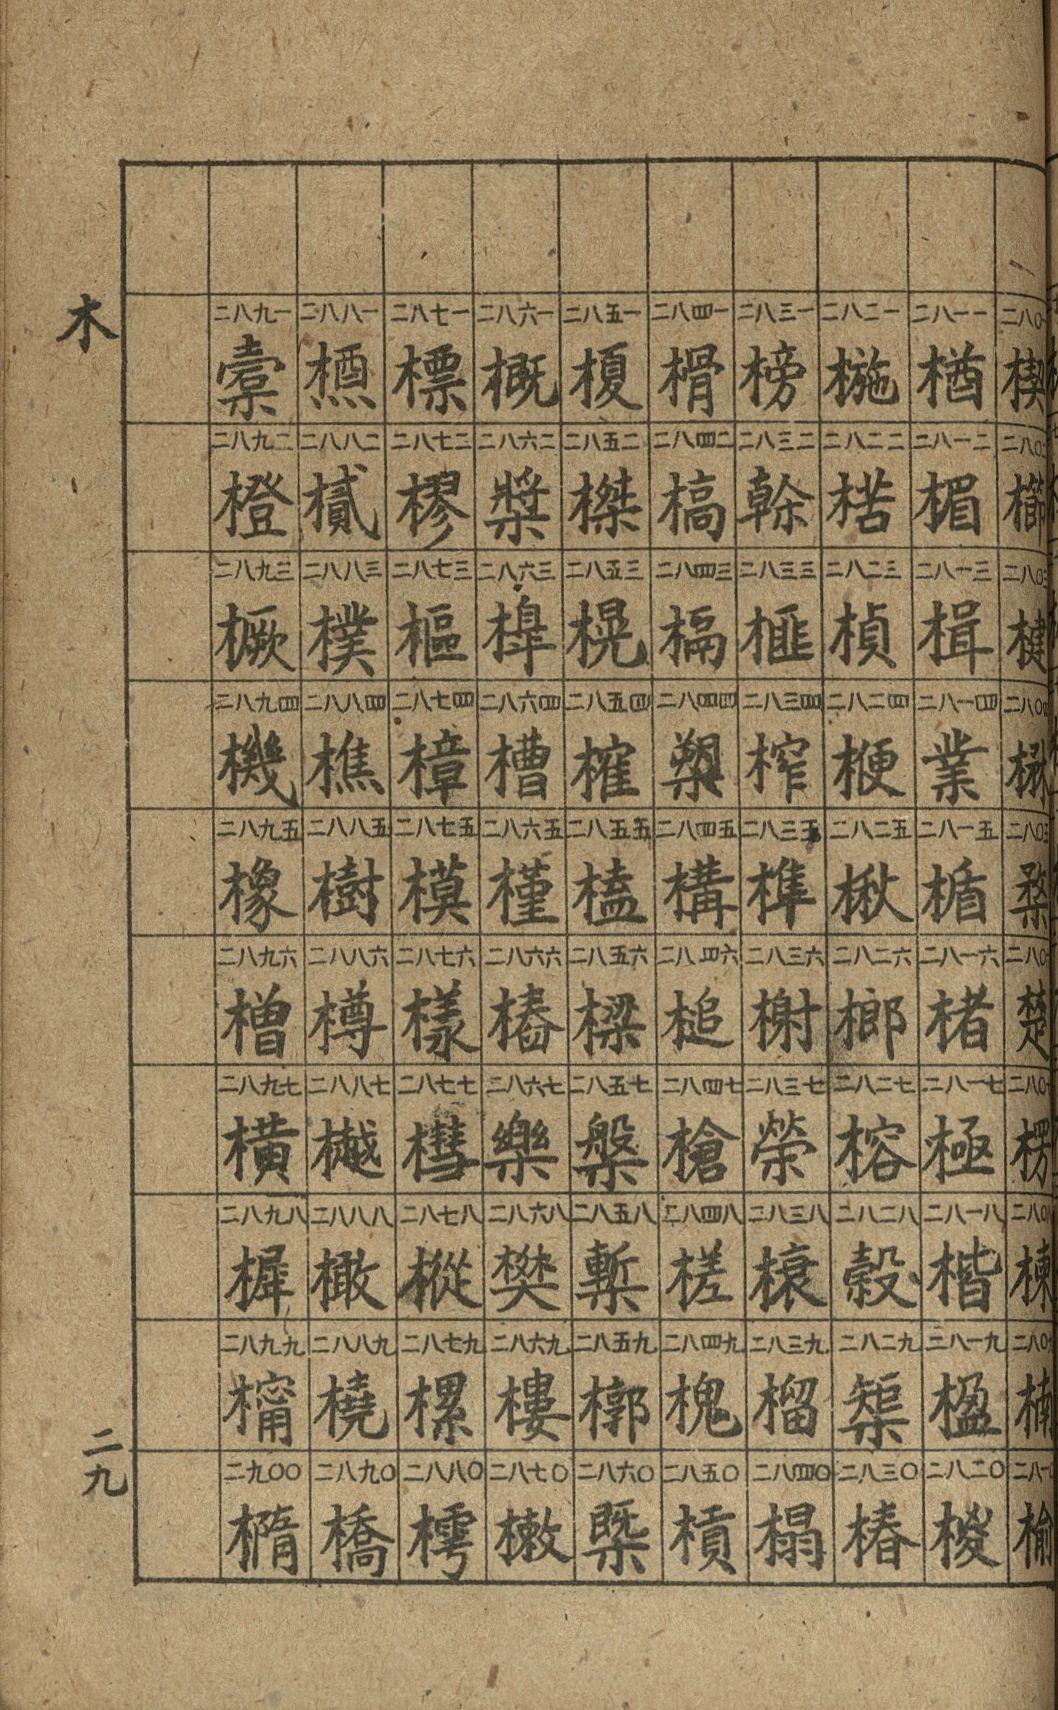 木
二八〇一 楔
二八〇三 楗
楙
楘
楚
楞
楝
楠
榆
二八一一 楢
二八一二 楣
二八一三 楫
二八一四 業
二八一五 楯
二八一六 楮
二八一七 極
二八一八 楷
二八一九 楹
二八二〇 椶
二八二一
二八二二 楛
二八二三 楨
二八二四 楩
二八二五 楸
二八二六 榔
二八二七 榕
二八二八 榖
二八二九 榘
二八三〇 椿
二八三一 榜
二八三二 榦
二八三三 榧
二八三四 榨
二八三五 榫
二八三六 榭
二八三七 榮
二八三八 榱
二八三九 榴
二八四〇 榻
二八四一 榾
二八四二 槁
二八四三 槅
二八四四 槊
二八四五 構
二八四六 槌
二八四七 槍
二八四八 槎
二八四九 槐
二八五〇 槓
二八五一 榎
二八五二 榤
二八五三 榥
二八五四 榷
二八五五 榼
二八五六 樑
二八五七 槃
二八五八 槧
二八五九 槨
二八六〇 槩
二八六一 概
二八六二 槳
二八六三 槔
二八六四 槽
二八六五 槿
二八六六 樁
二八六七 樂
二八六八 樊
二八六九 樓
二八七〇 樕
二八七一 標
二八七二 樛
二八七三 樞
二八七四 樟
二八七五 模
二八七六 樣
二八七七 槥
二八七八 樅
二八七九 樏
二八八〇 樗
二八八一 槱
二八八二 樲
二八八三 樸
二八八四 樵
二八八五 樹
二八八六 樽
二八八七 樾
二八八八 橄
二八八九 橈
二八九〇 橋
二八九一 橐
二八九二 橙
二八九三 橛
二八九四 機
二八九五 橡
二八九六 橧
二八九七 橫
二八九八 樨
二八九九
二九〇〇 橢
二九